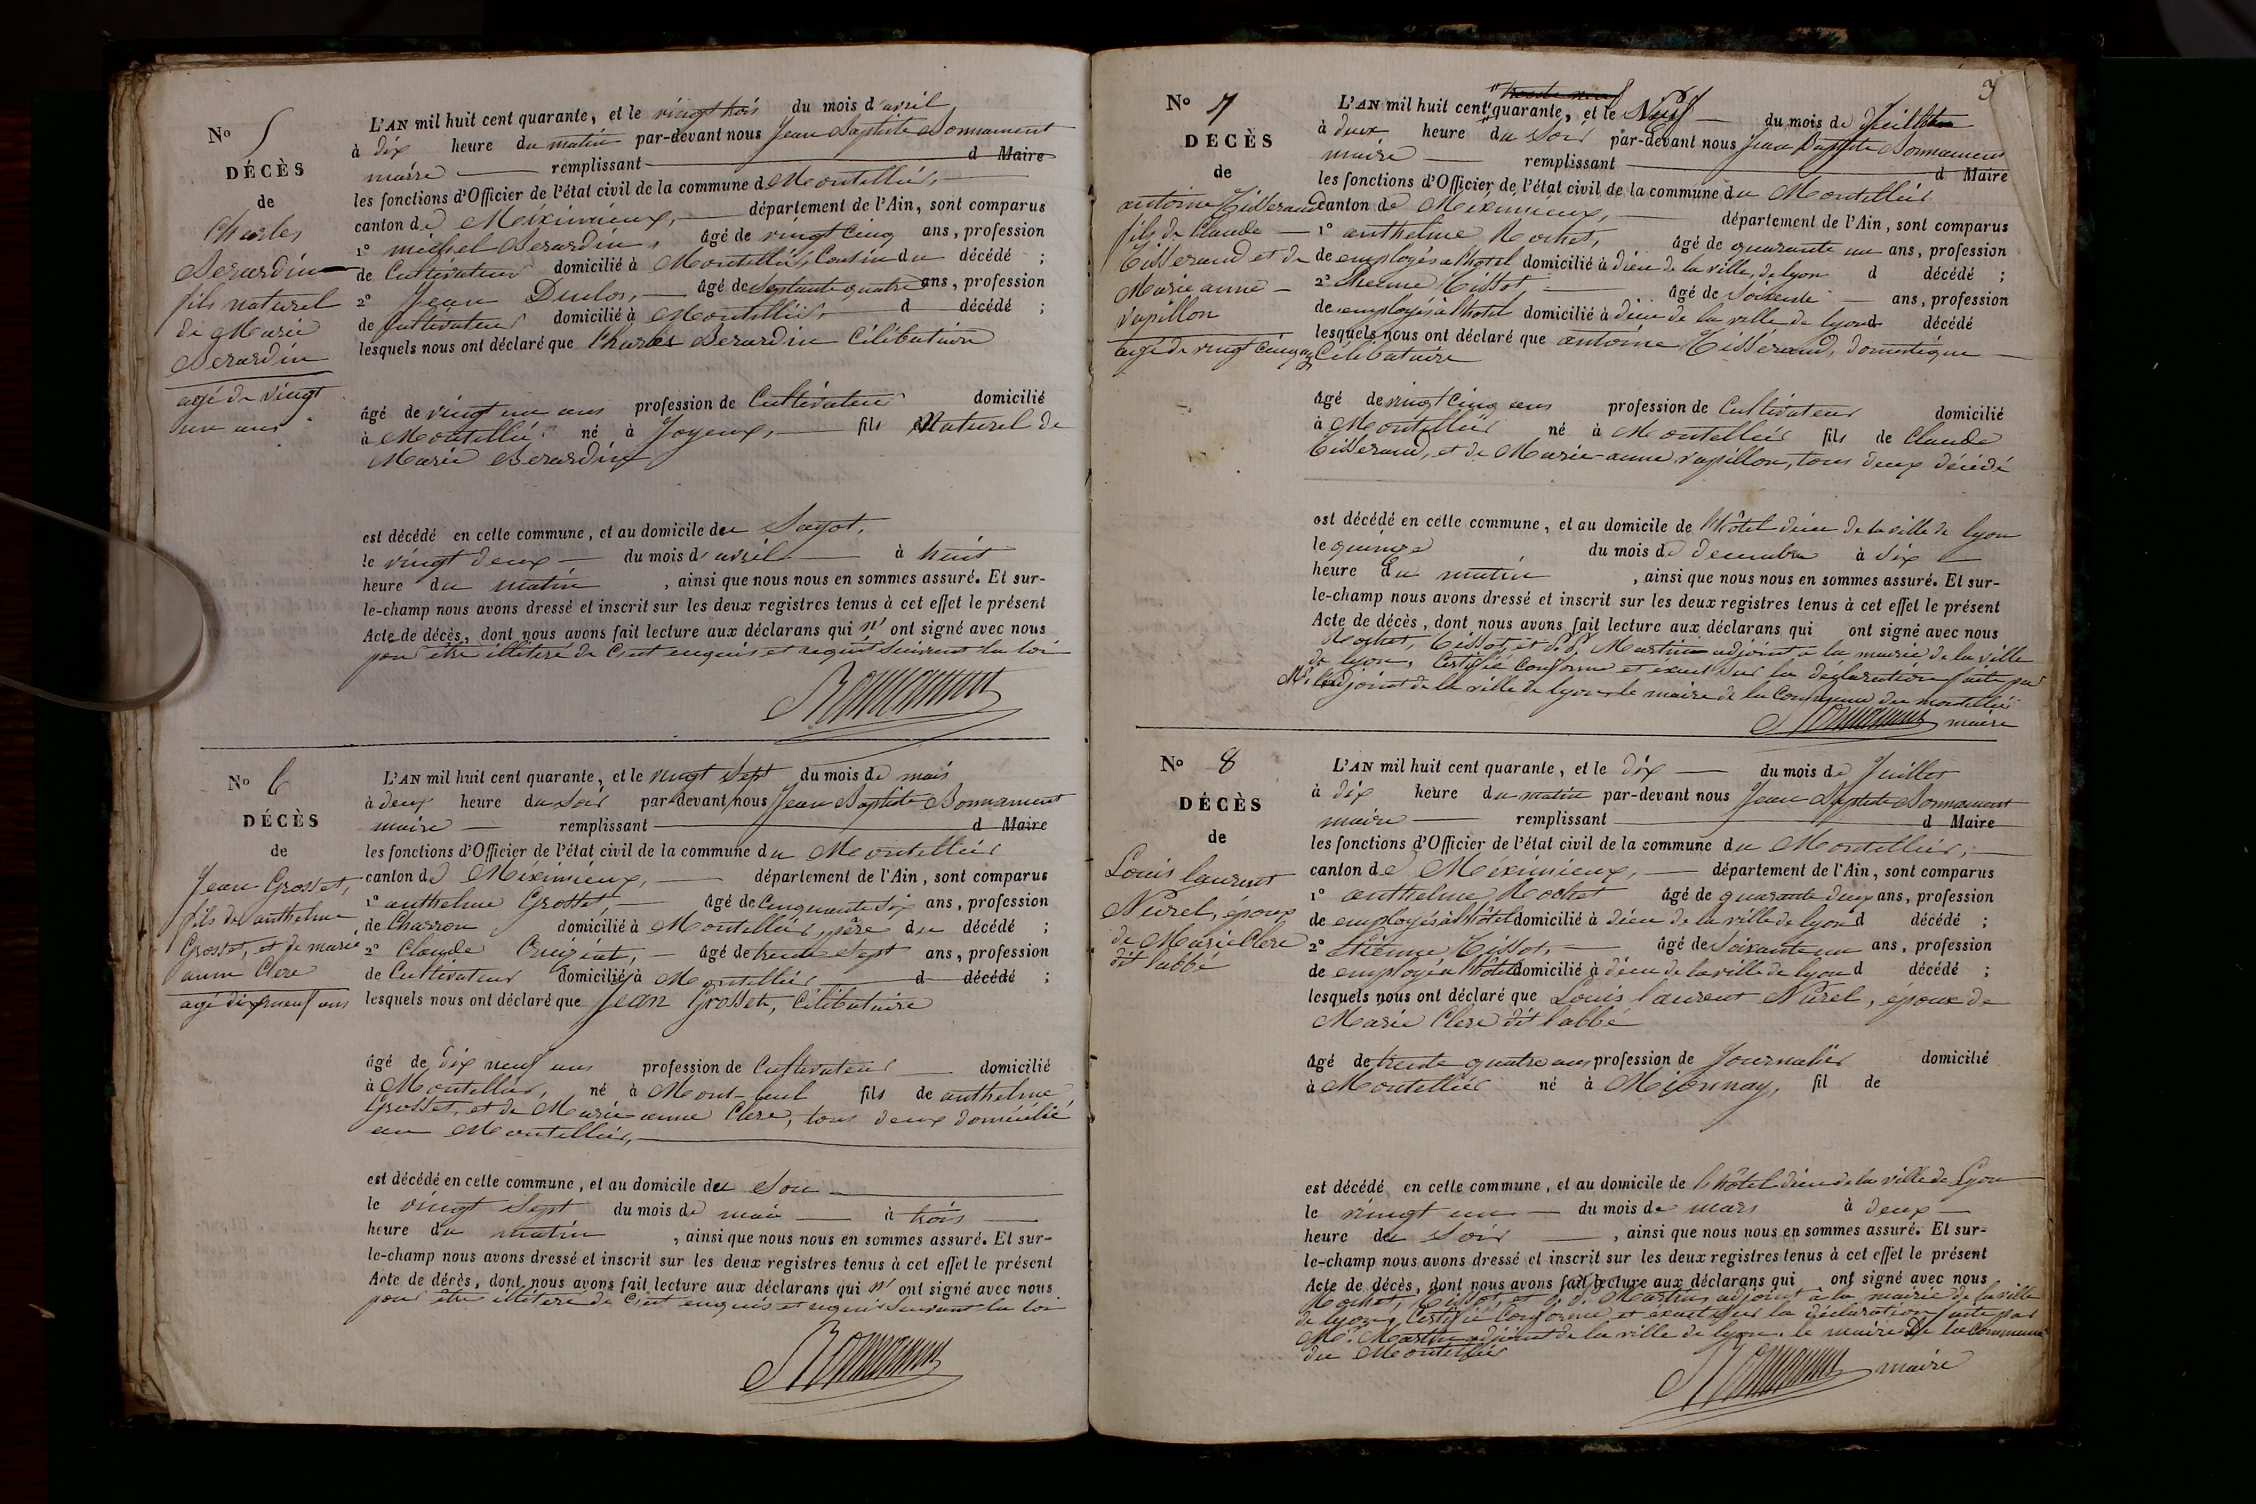 No 5
DÉCÈS
de
Charles
Berardin
fils naturel
de Marie
Berardin
agé de vingt
un ans
L'AN mil huit cent quarante, et le vingt trois du mois d'avril
à dix heure du matin par-devant nous Jean Baptiste Bonnament
maire remplissant d Maire
les fonctions d'Officier de l'état civil de la commune d Montellier,
canton de Meximieux, département de l'Ain, sont comparus
1o michel Berardin, âgé de vingt cinq ans, profession
de Cultivateur domicilié à Montellier, Cousin du décédé ;
2o Jean Duclos, âgé de Septante quatre ans, profession
de Cultivateur domicilié à Montellier d décédé ;
lesquels nous ont déclaré que Charles Berardin Célibataire
âgé de vingt un ans profession de Cultivateur domicilié
à Montellier né à Joyeux, fils Naturel de
Marie Berardin
est décédé en cette commune, et au domicile du Sagot,
le vingt deux du mois d'avril à huit
heure du matin, ainsi que nous nous en sommes assuré. Et sur-
le-champ nous avons dressé et inscrit sur les deux registres tenus à cet effet le présent
Acte de décès, dont nous avons fait lecture aux déclarans qui n' ont signé avec nous
pour être illiteré de C'ent enquis et requis suivent la loi
Bonnament
No 6
DÉCÈS
de
Jean Grosset,
fils de anthelme
Grosset, et de marie
anne Clere
agé dix neuf ans
L'AN mil huit cent quarante, et le vingt Sept du mois de mais
à deux heure du Soir par-devant nous Jean Baptiste Bonnament
maire remplissant d Maire
les fonctions d'Officier de l'état civil de la commune du Montellier
canton de Meximieux, département de l'Ain, sont comparus
1o anthelme Grosset âgé de Cinquante Six ans, profession
de Charron domicilié à Montellier, père du décédé ;
2o Claude âgé de trente Sept ans, profession
de Cultivateur domicilié à Montellier d décédé ;
lesquels nous ont déclaré que Jean Grosset, Célibataire
âgé de dix neuf ans profession de Cultivateur domicilié
à Montellier, né à Mont-luel fils de anthelme
Grosset, et de Marie anne Clere, tous deux domicilié
au Montellier,
est décédé en cette commune, et au domicile du Sou
le vingt Sept du mois de mais à trois
heure du matin, ainsi que nous nous en sommes assuré. Et sur-
le-champ nous avons dressé et inscrit sur les deux registres tenus à cet effet le présent
Acte de décès, dont nous avons fait lecture aux déclarans qui n' ont signé avec nous
pour être illiteré de C'ent enquis et requis Suivant la loi
Bonnament
3
No 7
DÉCÈS
de
antoine Tisserand
fils de Claude
Tisserand et de
Marie anne
rapillon
agé de vingt cinq ans
L'AN mil huit cent quarante, et le Neuf du mois de Juillet
à deux heure du Soir par-devant nous Jean Baptiste Bonnament
maire remplissant d Maire
les fonctions d'Officier de l'état civil de la commune du Montellier
canton de Meximieux, département de l'Ain, sont comparus
1o anthelme Rochet, âgé de quarante un ans, profession
de employés à l'hôtel domicilié à dieu de la ville, de lyon d décédé ;
2o Etienne Tissot, âgé de Soixente ans, profession
de employés à l'hôtel domicilié à dieu de la ville de lyon d décédé
lesquels nous ont déclaré que antoine Tisserand, domestique
Célibataire
âgé de vingt Cinq ans profession de Cultivateur domicilié
à Montellier né à Montellier fils de Claude
Tisserand, et de Marie-anne rapillon, tous deux décédé
est décédé en cette commune, et au domicile de l'hôtel dieu de la ville de lyon
le quinze du mois de decembre à dix
heure du matin, ainsi que nous nous en sommes assuré. Et sur-
le-champ nous avons dressé et inscrit sur les deux registres tenus à cet effet le présent
Acte de décès, dont nous avons fait lecture aux déclarans qui ont signé avec nous
Rochet, Tissot, et Martin adjoint a la mairie de la ville
de lyon, Certifié Conforme et exact Sur la déclaration faite par
Mr l'adjoint de la ville de lyon, le maire de la Commune du montellier
Bonnament maire
No 8
DÉCÈS
de
Louis laurent
Nurel, époux
de Marie Clere
dit l'abbé
L'AN mil huit cent quarante, et le dix du mois de Juillet
à dix heure du matin par-devant nous Jean Baptiste Bonnament
maire remplissant d Maire
les fonctions d'Officier de l'état civil de la commune du Montellier,
canton de Meximieux, département de l'Ain, sont comparus
1o anthelme Rochet âgé de quarante deux ans, profession
de employés à l'hôtel domicilié à dieu de la ville de lyon d décédé ;
2o Etienne Tissot, âgé de Soixante un ans, profession
de employé a l'hôtel domicilié à dieu de la ville de lyon d décédé ;
lesquels nous ont déclaré que Louis laurent Nurel, époux de
Marie Clere dit l'abbé
âgé de trente quatre ans profession de Journalier domicilié
à Montellier né à Mionnay, fil de
est décédé en cette commune, et au domicile de l'hôtel dieu de la ville de Lyon
le vingt un du mois de mars à deux
heure du Soir, ainsi que nous nous en sommes assuré. Et sur-
le-champ nous avons dressé et inscrit sur les deux registres tenus à cet effet le présent
Acte de décès, dont nous avons fait lecture aux déclarans qui ont signé avec nous
Rochet, Tissot, et Martin, adjoint à la mairie de la ville
de lyon, Certifié Conforme et exact Sur la déclaration faite par
Mr. Martin adjoint de la ville de lyon. le maire De la Commune
du Montellier
Bonnament maire